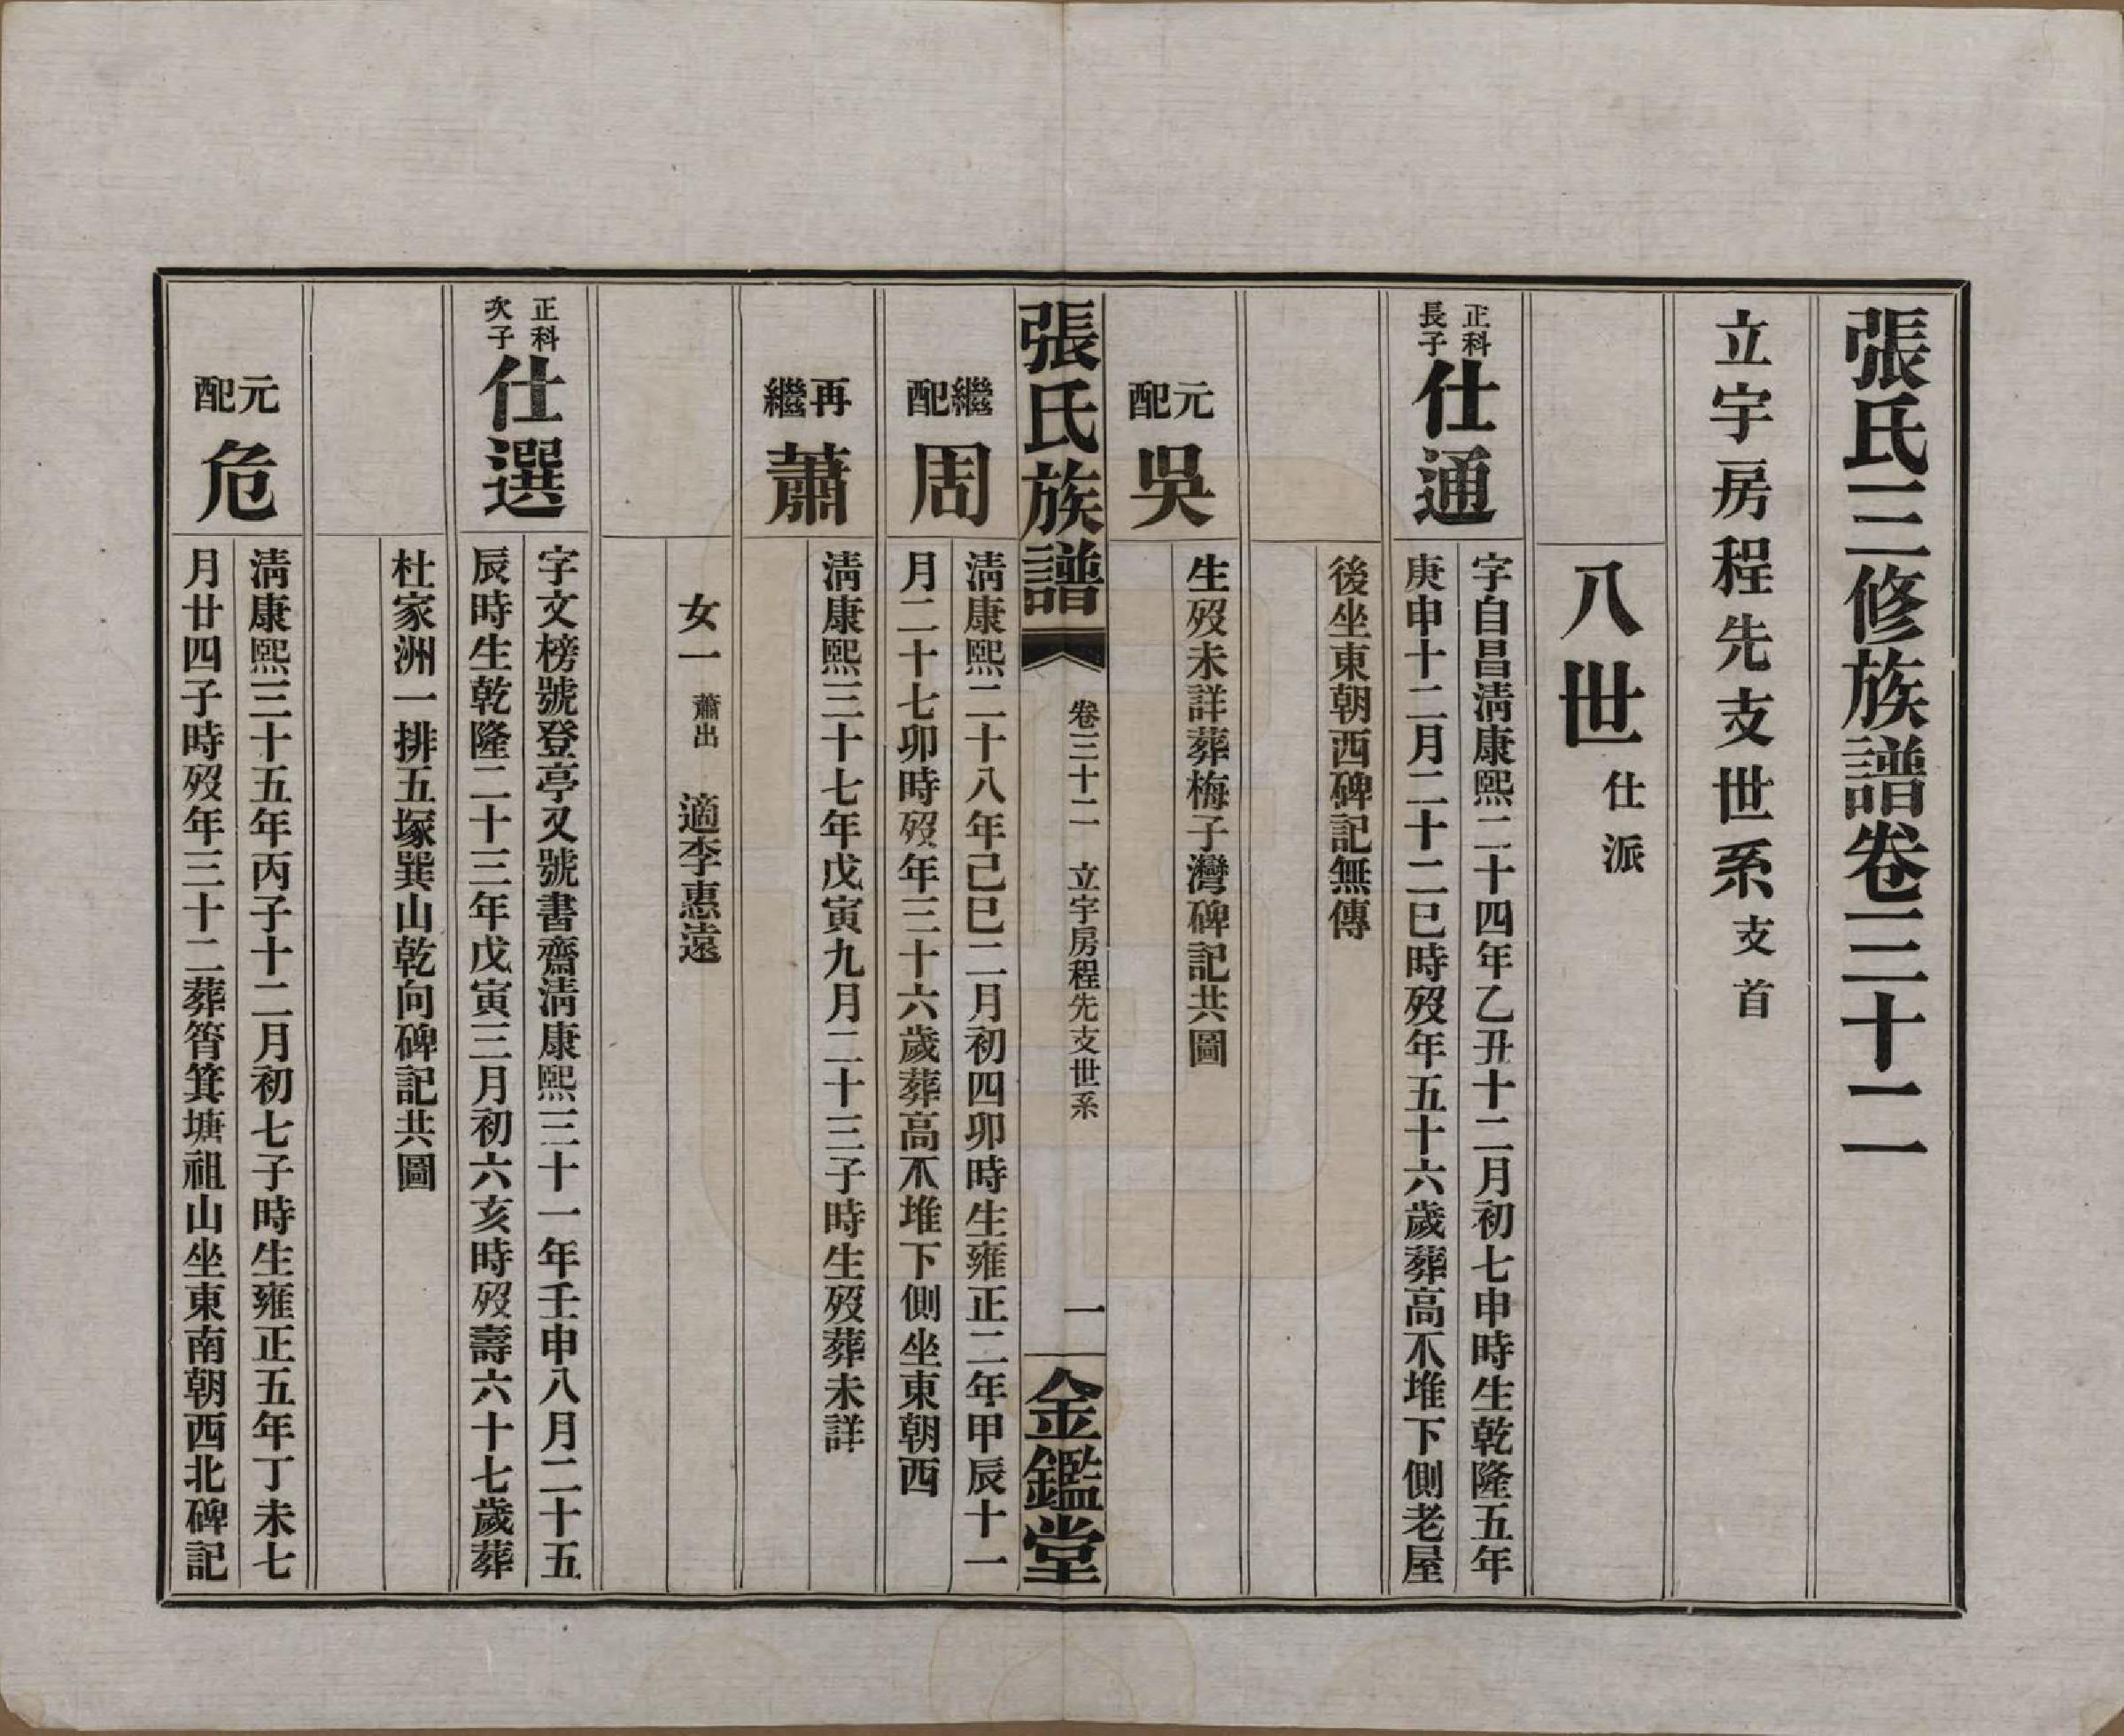 張氏三修族譜卷三十二
立宇房程先支世系支首
八世仕派
正科長子仕通
字自昌清康熙二十四年乙丑十二月初七申時生乾隆五年
庚申十二月二十二巳時歿年五十六歲葬高不堆下側老屋
後坐東朝西碑記無傳
元配吳
生歿未詳葬梅子灣碑記共圖
張氏族譜
卷三十二 立宇房程先支世系
一
金鑑堂
繼配周
清康熙二十八年己巳二月初四卯時生雍正二年甲辰十一
月二十七卯時歿年三十六歲葬高不堆下側坐東朝西
再繼蕭
清康熙三十七年戊寅九月二十三子時生歿葬未詳
女一 蕭出 適李惠遠
正科次子仕選
字文榜號登亭又號書齋清康熙三十一年壬申八月二十五
辰時生乾隆二十三年戊寅三月初六亥時歿壽六十七歲葬
杜家洲一排五塚巽山乾向碑記共圖
元配危
清康熙三十五年丙子十二月初七子時生雍正五年丁未七
月廿四子時歿年三十二葬筲箕塘祖山坐東南朝西北碑記